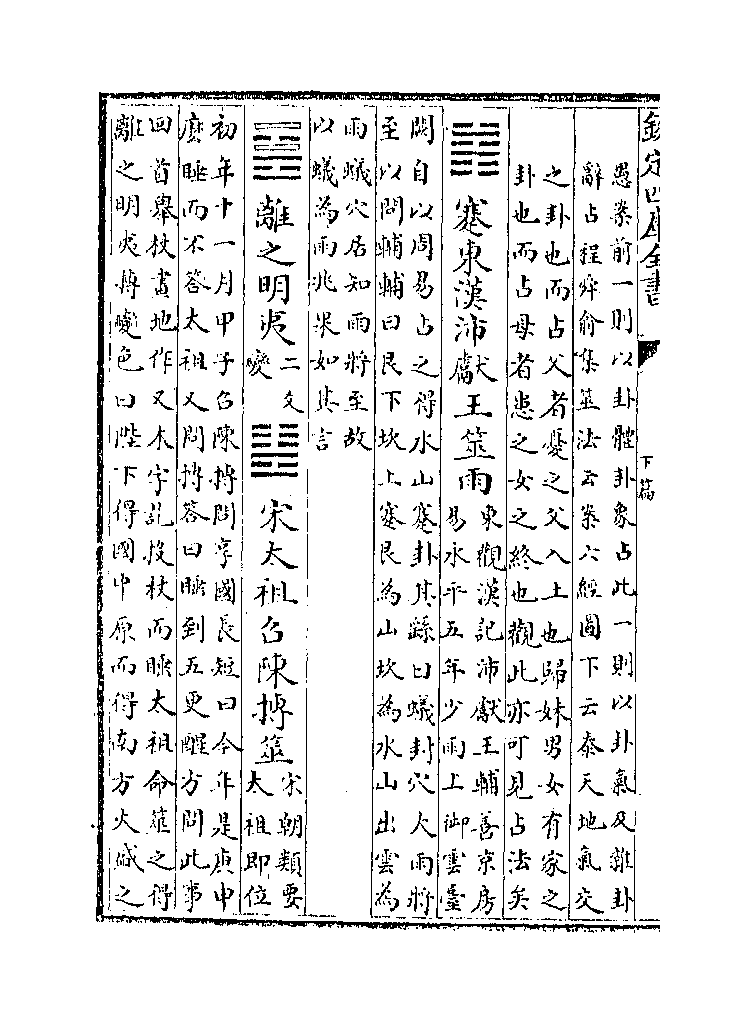 欽定四庫全書
下篇
愚案前一則以卦體卦象占此一則以卦氣及雜卦
辭占程舜俞集筮法云案六經圖下云泰天地氣交
之卦也而占父者憂之父入土也歸妹男女有家之
卦也而占母者患之女之終也觀此亦可見占法矣
蹇東漢沛獻王筮雨
東觀漢記沛獻王輔善京房
易永平五年少雨上御雲臺
閣自以周易占之得水山蹇卦其繇曰蟻封穴大雨將
至以問輔輔曰艮下坎上蹇艮為山坎為水山出雲為
雨蟻穴居知雨將至故
以蟻為雨兆果如其言
離之明夷
二爻
變
宋太祖召陳摶筮
宋朝類要
太祖即位
初年十一月甲子召陳摶問享國長短曰今年是庚申
麼睡而不答太祖又問摶答曰睡到五更醒方問此事
回首舉杖畫地作又木字訖投杖而睡太祖命筮之得
離之明夷摶變色曰陛下得國中原而得南方火盛之